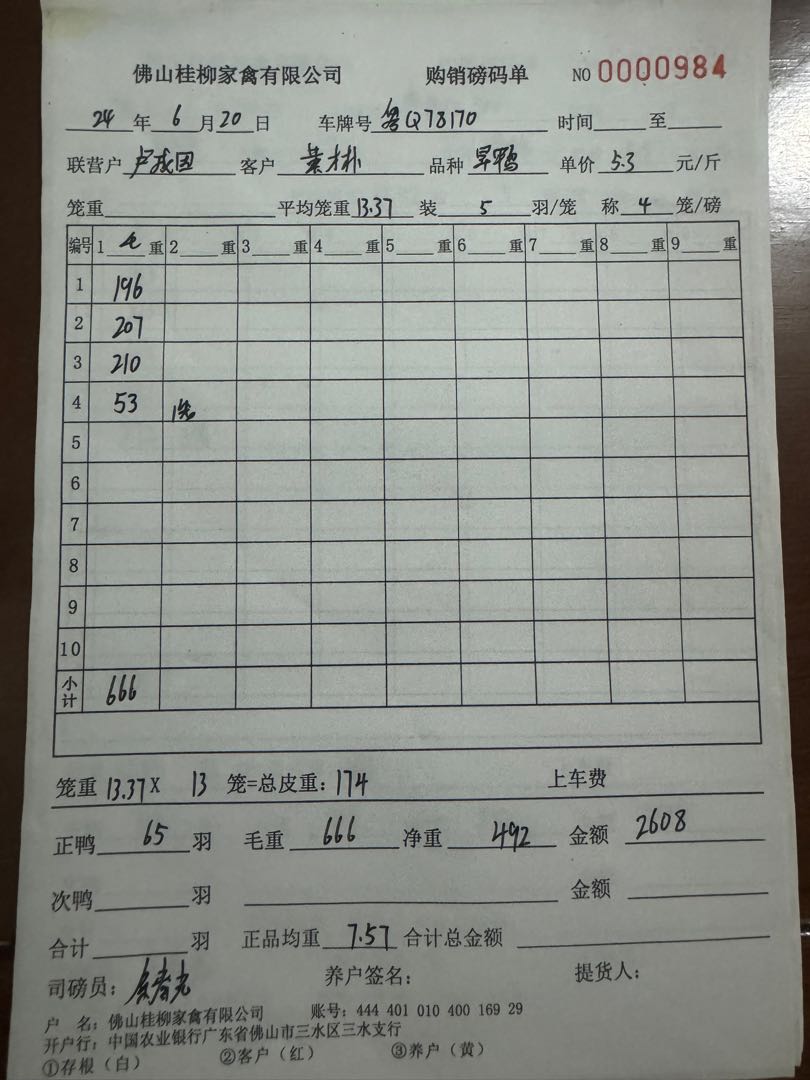 佛山桂柳家禽有限公司 购销磅码单 NO 0000984
24 年 6 月 20 日 车牌号 粤Q78170 时间 至
联营户 卢 国 客户 叶才朴 品种 旱鸭 单价 5.3 元/斤
笼重 平均笼重 13.37 装 5 羽/笼 称 4 笼/磅
编号 1 毛 重 2 重 3 重 4 重 5 重 6 重 7 重 8 重 9 重
1 196
2 207
3 210
4 53 1笼
5
6
7
8
9
10
小计 666
笼重 13.37 X 13 笼=总皮重: 174 上车费
正鸭 65 羽 毛重 666 净重 492 金额 2608
次鸭 羽 金额
合计 羽 正品均重 7.57 合计总金额
司磅员: 养户签名: 提货人:
户 名: 佛山桂柳家禽有限公司 账号: 444 401 010 400 169 29
开户行: 中国农业银行广东省佛山市三水区三水支行
①存根(白) ②客户(红) ③养户(黄)